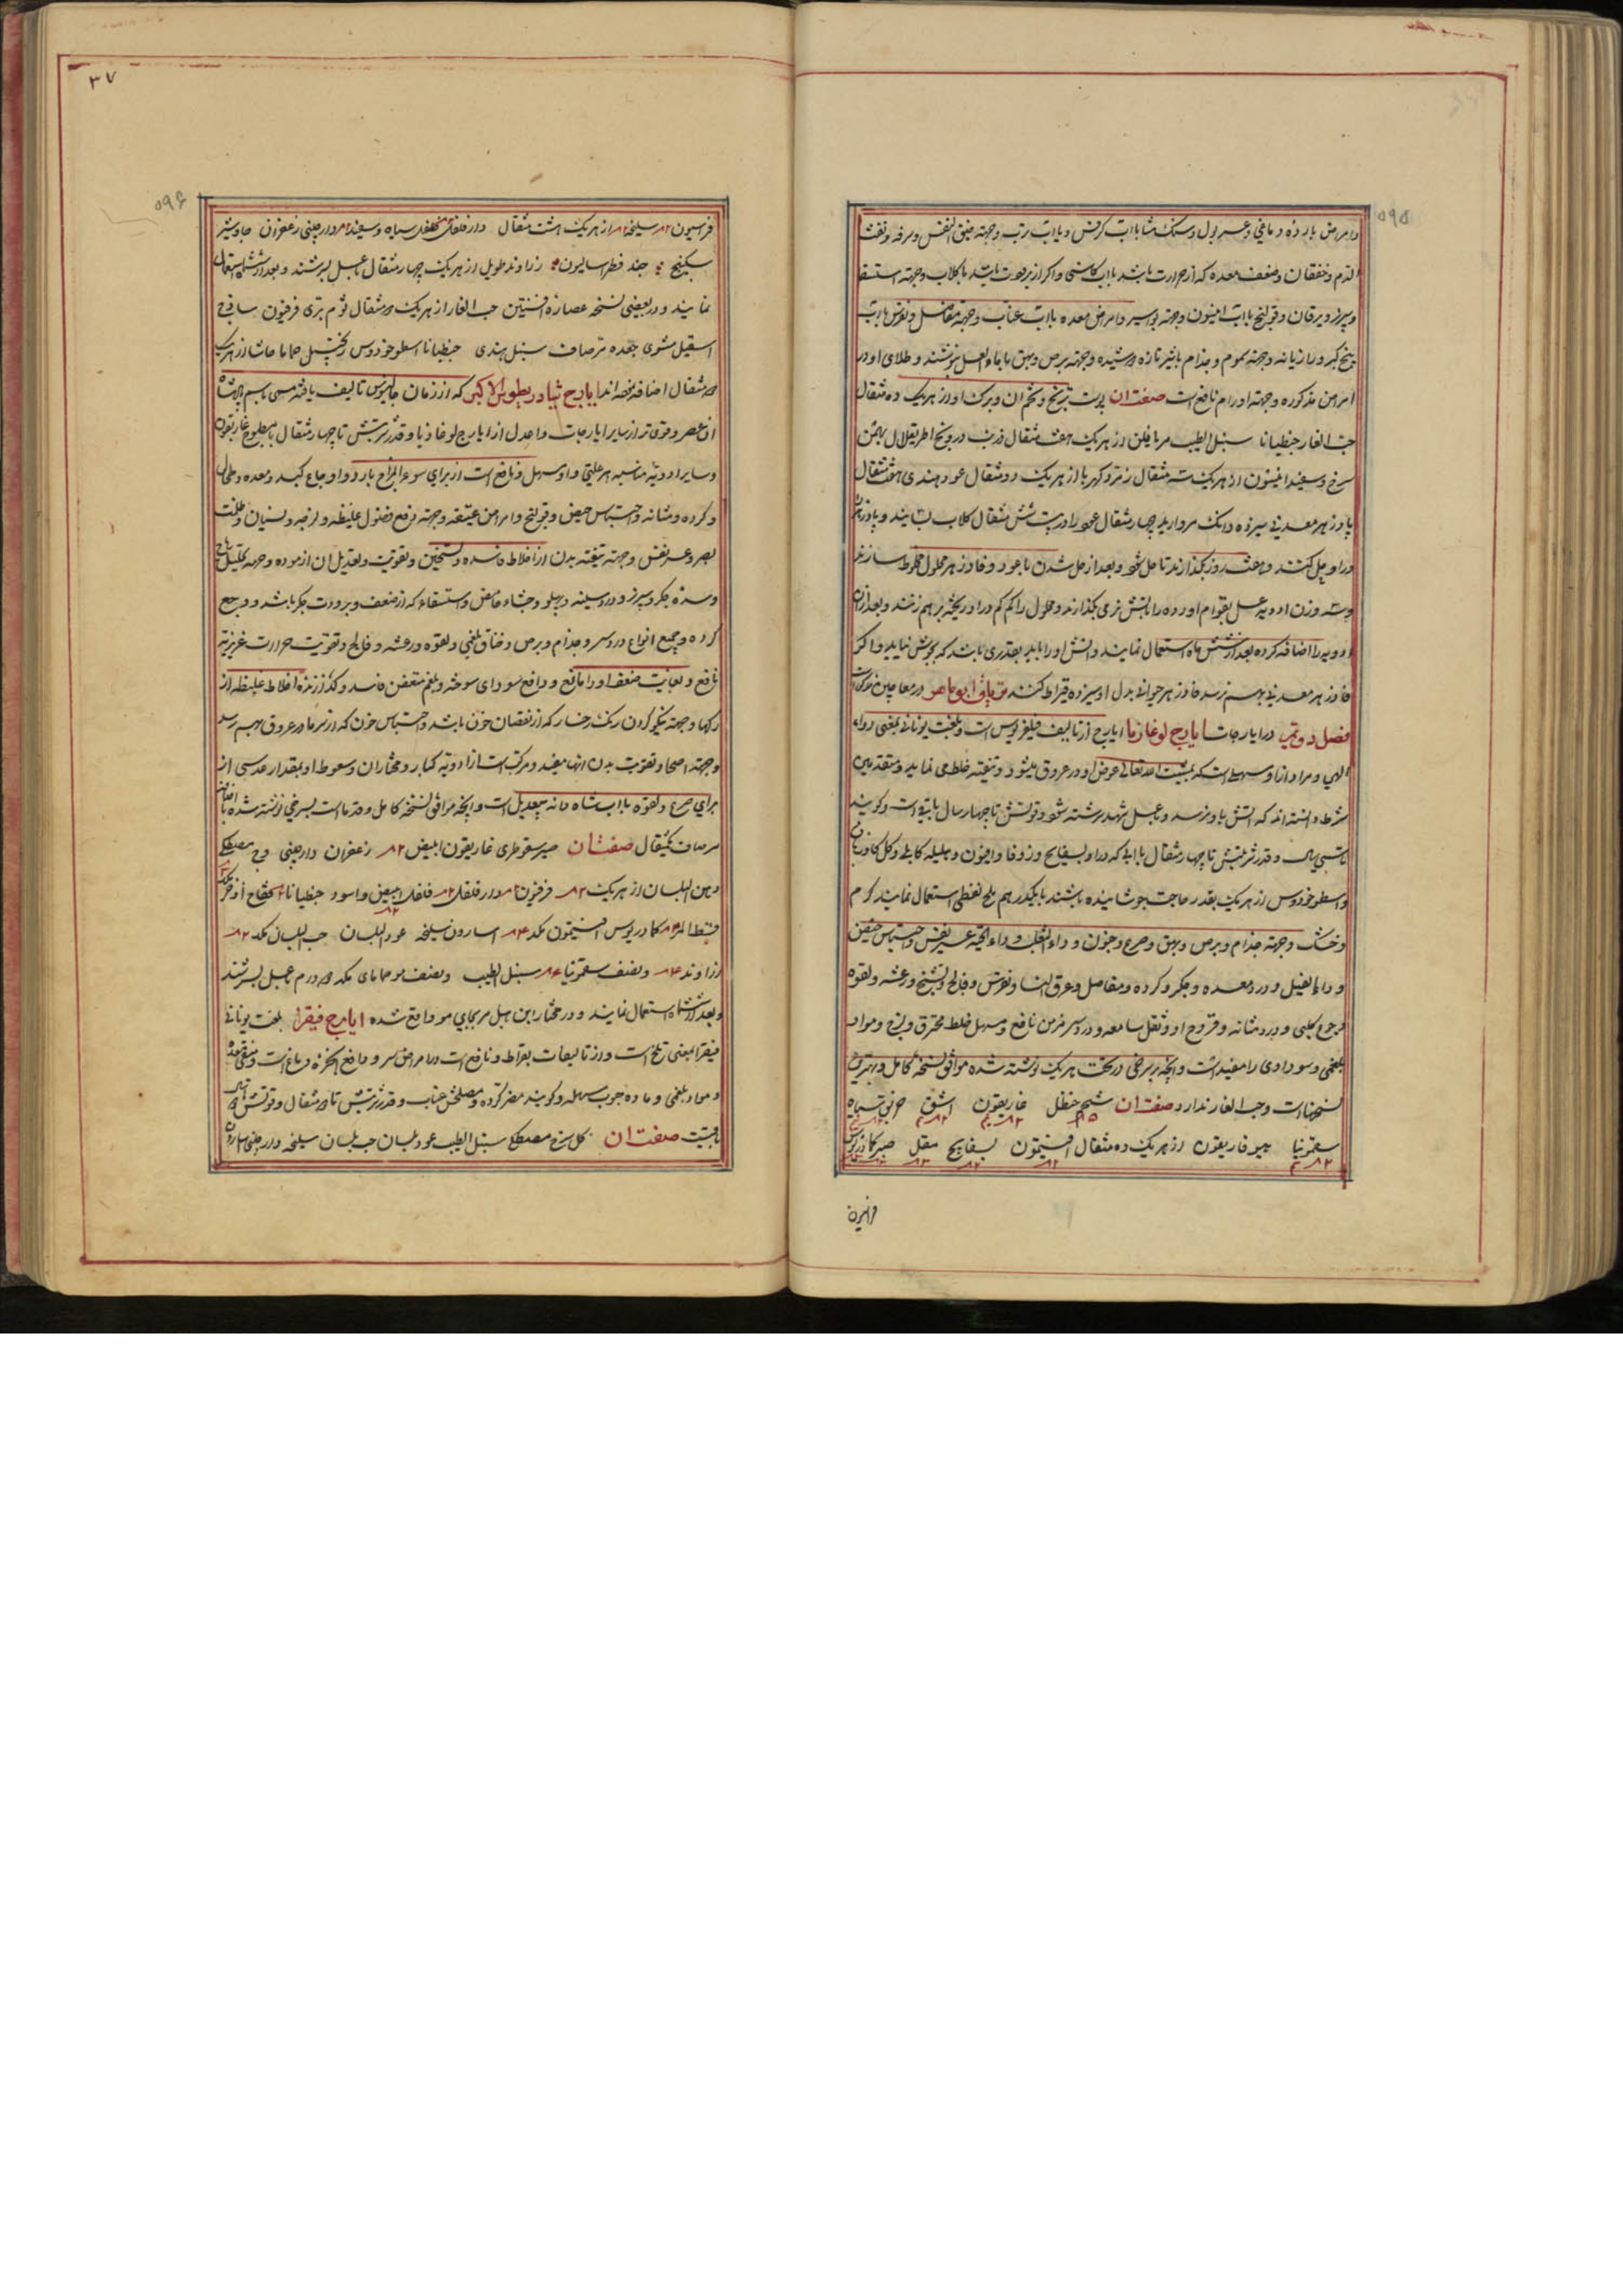 ۵۹۵
و امراض بارده دماغی و عسر بول و سنک مثانه با آب کرفس و با آب رتب و جهته ضیق النفس و سرفه و نفث
الدم و خفقان و ضعف معده که از حرارت باشد با آب کاسنی و اگر از برودت باشد با کلاب و جهته استسقا
و سپرز و یرقان و قولنج با آب انیسون و جهته بواسیر و امراض معده با آب عناب و جهته مفاصل و نقرس با آب
بیخ کبر و رازیانه و جهته سموم و جذام با شیر تازه دوشیده و جهته برص و بهق با ماء العسل بنوشند و طلای او در
امراض مذکوره و جهته اورام نافع است صفت ان پوست ترنج و تخم ان و برک او از هر یک ده مثقال
حب الغار جنطیانا سنبل الطیب مر از هر یک هفت مثقال درونج
سرخ و سفید انیسون از هر یک سه مثقال زمرد کهربا از هر یک دو مثقال عود هندی هفت مثقال
پادزهر معدنی سیزده دانک مروارید چهار مثقال عود را در بیست شش مثقال کلاب بسایند و پادزهر
در او حل کنند و هشت روز بگذارند تا حل شود و بعد از حل شدن با عود و فادزهر محلول مخلوط سازند
و سه وزن ادویه عسل بقوام اورده را باتش نرمی بگذارند و محلول را کم کم در او ریخته بر هم زنند و بعد از ان
ادویه را اضافه کرده بعد از شش ماه استعمال نمایند و اتش او را باید بقدری باشد که بجوش نیاید و اکر
فادزهر معدنی بهم نرسد فادزهر حیوانی بدل او سیزده قیراط کنند تریاق ابو ماهر در معاجین مذکور است
فصل دوم در ایارجات ایارج لوغاذیا ایارج از تالیف فیلغریوس است و بلغت یونانی بمعنی دواء
الهی و مراد از او مسهلی است که بمشیت الله تعالی غوص او در عروق میشود و تنقیه خلط می نماید و متقدمین
شرط دانسته اند که اتش باو نرسد و بعسل شهد سرشته شود و قوتش تا چهار سال باقیست و کویند
تا سی سال و قدر شربتش تا چهار مثقال با ابی که در او بسفایج و زوفا و افیون و هلیله کابلی و کل کاوزبان
و اسطوخودوس از هر یک بقدر حاجت جوشانیده باشند با یکدرهم ملح نفطی استعمال نمایند کرم
و خشک و جهته جذام و برص و بهق و صرع و جنون و داء الثعلب و داء الحیه عسر نفس و احتباس حیض
و داء الفیل و درد معده و جکر و کرده و مفاصل و عرق النسا و نقرس و فالج و تشنج و رعشه و لقوه
وجع کلی و درد مثانه و قروح او و ثقل سامعه و درد سر مزمن نافع و مسهل خلط محترق و لزج و مواد
بلغمی و سوداوی را مفید است و انچه بسرخی در تحت هر یک نوشته شده موافق نسخه کامل و بهترین
نسخهاست و حب الغار ندارد صفت ان شحم حنظل غاریقون اشق خربق سیاه
سقمونیا هیوفاریقون از هر یک ده مثقال افتیمون بسفایج مقل صبر کمادریوس
فراسیون
۳۷
۵۹۶
فراسیون سلیخه از هر یک هشت مثقال دار فلفل فلفل سیاه و سفید دارچینی زعفران جاوشیر
سکبینج جند فطراسالیون زراوند طویل از هر یک چهار مثقال بعسل بسرشند و بعد از ششماه استعمال
نمایند و در بعضی نسخه عصاره افسنتین حب الغار از هر یک دو مثقال ثوم بری فرفیون ساذج
اسقیل مشوی جعده مر صاف سنبل هندی جنطیانا اسطوخودوس زنجبیل حماما حاشا از هر یک
دو مثقال اضافه نموده اند ایارج ثیادریطوس الاکبر که از زمان جالینوس تالیف یافته مسمی باسم پادشاه
ان عصر و قوی تر از سایر ایارجات و اعدل از ایارج لوغاذیا و قدر شربتش تا چهار مثقال با مطبوخ غاریقون
و سایر ادویه مناسبه هر علتی و او مسهل و نافع است از برای سوء المزاج بارد و اوجاع کبد و معده و طحال
و کرده و مثانه و احتباس حیض و قولنج و امراض عتیقه و جهته رفع فضول غلیظه و لزجه و نسیان و ظلمت
بصر و عسر نفس و جهته تنقیه بدن از اخلاط فاسده و تسخین و تقویت و تعدیل ان ازموده و جهته تحلیل ریاح
و سده جکر و سپرز و درد سینه و پهلو و جشاء حامض و استسقاء که از ضعف و برودت جکر باشد و وجع
کرده و جمیع انواع درد سر و جذام و برص و خناق بلغمی و لقوه و رعشه و فالج و تقویت حرارت غریزیه
نافع و بغایت ضعف او را مانع و دافع سودای سوخته و بلغم متعفن فاسد و کدازنده اخلاط غلیظه از
رکها و جهته نیکو کردن رنک رخسار که از نقصان خون باشد و احتباس خون که از سرما در عروق بهم رسد
و جهته اصحا و تقویت بدن انها مفید و مرکب است از ادویه کبار و مختاران و سعوط او بمقدار عدسی از
برای صرع و لقوه با اب شاه دانه بیعدیل است و انچه موافق نسخه کامل و قدما است بسرخی نوشته شده
مر صاف یکمثقال صفت ان صبر سقوطری غاریقون ابیض زعفران دارچینی وج مصطکی
دهن البلسان از هر یک فرفیون دار فلفل فلفل ابیض و اسود جنطیانا فقاح اذخر
قسط المر کمادریوس افتیمون مکد اسارون سلیخه عود البلسان حب البلسان مکد
رزاوند و نصف سقمونیا سنبل الطیب و نصف مو حماما مکد دو درم بعسل بسرشند
و بعد از ششماه استعمال نمایند و در مختار ابن هبل مر بجای مو واقع شده ایارج فیقرا بلغت یونانی
فیقرا بمعنی تلخ است و از تالیفات بقراط و نافع است در امراض سر و دافع ابخره دماغ است و منقی معده
و مواد بلغمی و ماده جرب سهله و کویند مضر کرده و مصلحش عناب و قدر شربتش تا دو مثقال و قوتش تا دو سال
باقیست صفت ان کل سرخ مصطکی سنبل الطیب عود بلسان حب بلسان سلیخه دارچینی اسارون